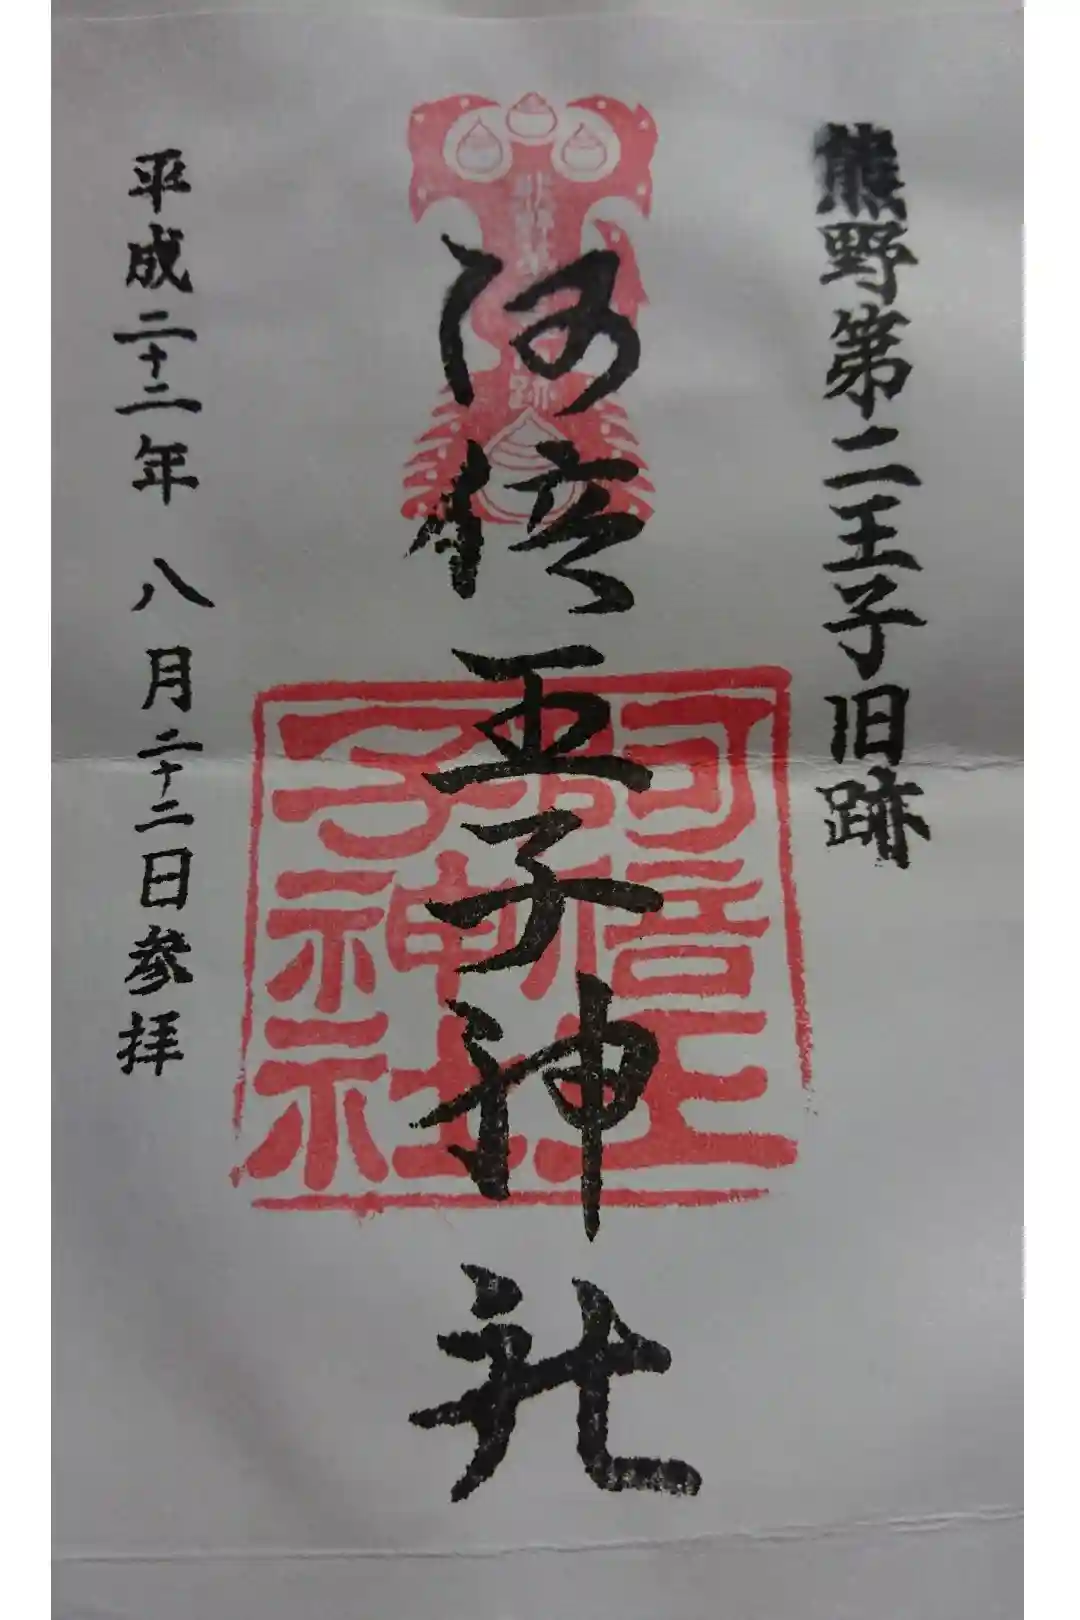 熊野第二王子旧跡
阿倍王子神社
跡
阿倍王
子神社
平成二十二年 八月二十二日参拝